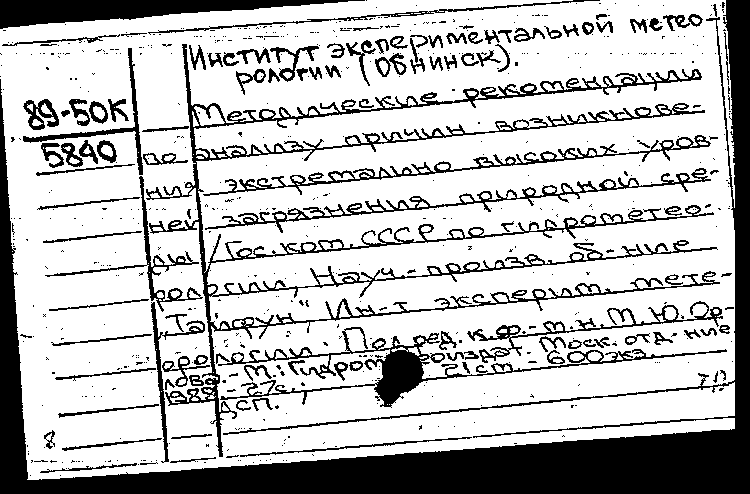 Институт экспериментальной метео-
рологии (Обнинск).
89-50К
5840
Методические рекомендации
по анализу причин возникнове-
ния экстремально высоких уров-
ней загрязнения природной сре-
ды / Гос. ком. СССР по гидрометео-
рологии, Науч.-произв. об-ние
„Тайфун", Ин-т эксперим. мете-
орологии; Под ред. к.ф.-м.н. М.Ю. Ор-
лова. - М.: Гидрометеоиздат. Моск. отд-ние
27с.; 21см. - 600экз.
ДСП.
8